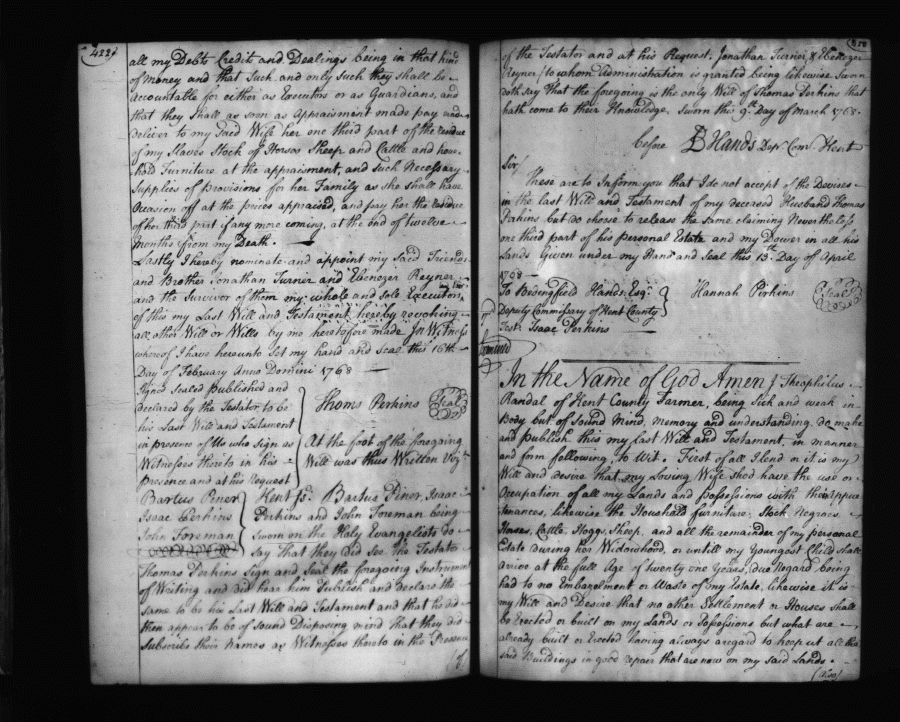 422
all my Debts Credits and Dealings being in that kind
of Money and that Such and only Such they shall be
Accountable for either as Executors or as Guardians, and
that they Shall as soon as Appraisment made pay and
deliver to my Said Wife her one third part of the residue
of my Slaves Stock of Horses Sheep and Cattle and house
hold Furniture at the appraisment, and such Necessary
Supplies of Provisions for her Family as she shall have
Occasion off at the prices appraised, and pay her the residue
of her third part if any more coming, at the end of twelve
Months from my Death.
Lastly I hereby nominate and appoint my Said Friends
and Brother Jonathan Turner and Ebenezer Reyner
and the Survivor of them my whole and sole Executors
of this my Last Will and Testament hereby revoking
all other Will or Wills by me heretofore made In Witness
whereof I have hereunto Set my hand and Seal this 16th
Day of February Anno Domini 1768
Sign'd Sealed Published and
declared by the Testator to be
his Last Will and Testament
in presence of Us who sign as
Witnesses thereto in his
Presence and at his Request
Bartus Piner
Isaac Perkins
John Foreman
Thoms Perkins Seal
At the foot of the foregoing
Will was thus Written Viz.t
Kent Ss. Bartus Piner Isaac
Perkins and John Foreman being
Sworn on the Holy Evangelists do
say That they did See the Testator
Thomas Perkins Sign and Seal the foregoing Instrument
of Writing and did hear him Publish and declare the
same to be his Last Will and Testament and that he did
then appear to be of Sound Disposing mind that they did
Subscribe their Names as Witnesses thereto in the Presence
of
of the Testator and at his Request. Jonathan Turner & Ebenezer
Reyner (to whom Administration is granted being likewise Sworn
doth Say that the foregoing is the only Will of Thomas Perkins that
hath come to their Knowledge. Sworn this 9th Day of March 1768.
before Hands Depy Com. Kent
Sir
These are to Inform you that I do not accept of the Devises
in the last Will and Testament of my deceased Husband Thomas
Perkins but do chose to release the Same claiming Nevertheless
one third part of his personal Estate and my Dower in all his
Lands Given under my Hand and Seal this 13th Day of April
1768
To Bedingfield Hands Esqr.
Deputy Commissary of Kent County
Test. Isaac Perkins
Hannah Pirkins Seal
Examined
In the Name of God Amen I Theophilus
Randal of Kent County Farmer, being Sick and weak in
Body but of Sound Mind, Memory and understanding do make
and publish this my last Will and Testament, in manner
and form following, To Wit. First of all I lend or it is my
Will and desire that my Loving Wife shod have the use or
Occupation of all my Lands and possessions with their appur
tenances, likewise the Houshold furniture, Stock Negroes
Horses, Cattle Hoggs, Sheep, and all the remainder of my personal
Estate during her Widowhood, or untill my Youngest Child shall
arive at the full Age of twenty one Years, due Regard being
had to no Embezelment or Waste of my Estate, likewise it is
my Will and Desire that no other Settlement or Houses shall
be Erected or built on my Lands or Possessions but what are
already built or Erected having always a regard to keep up all the
said Buildings in good repair that are now on my said Lands.
(Also)